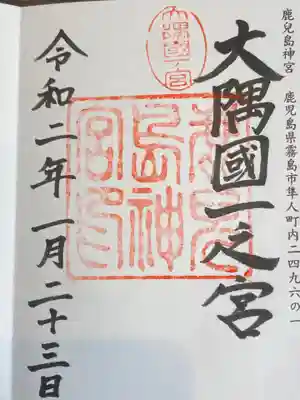 鹿兒島神宮　鹿児島県霧島市隼人町内二四九六の一
大隅國一之宮
大隅國一宮
鹿兒島神宮印
令和二年一月二十三日